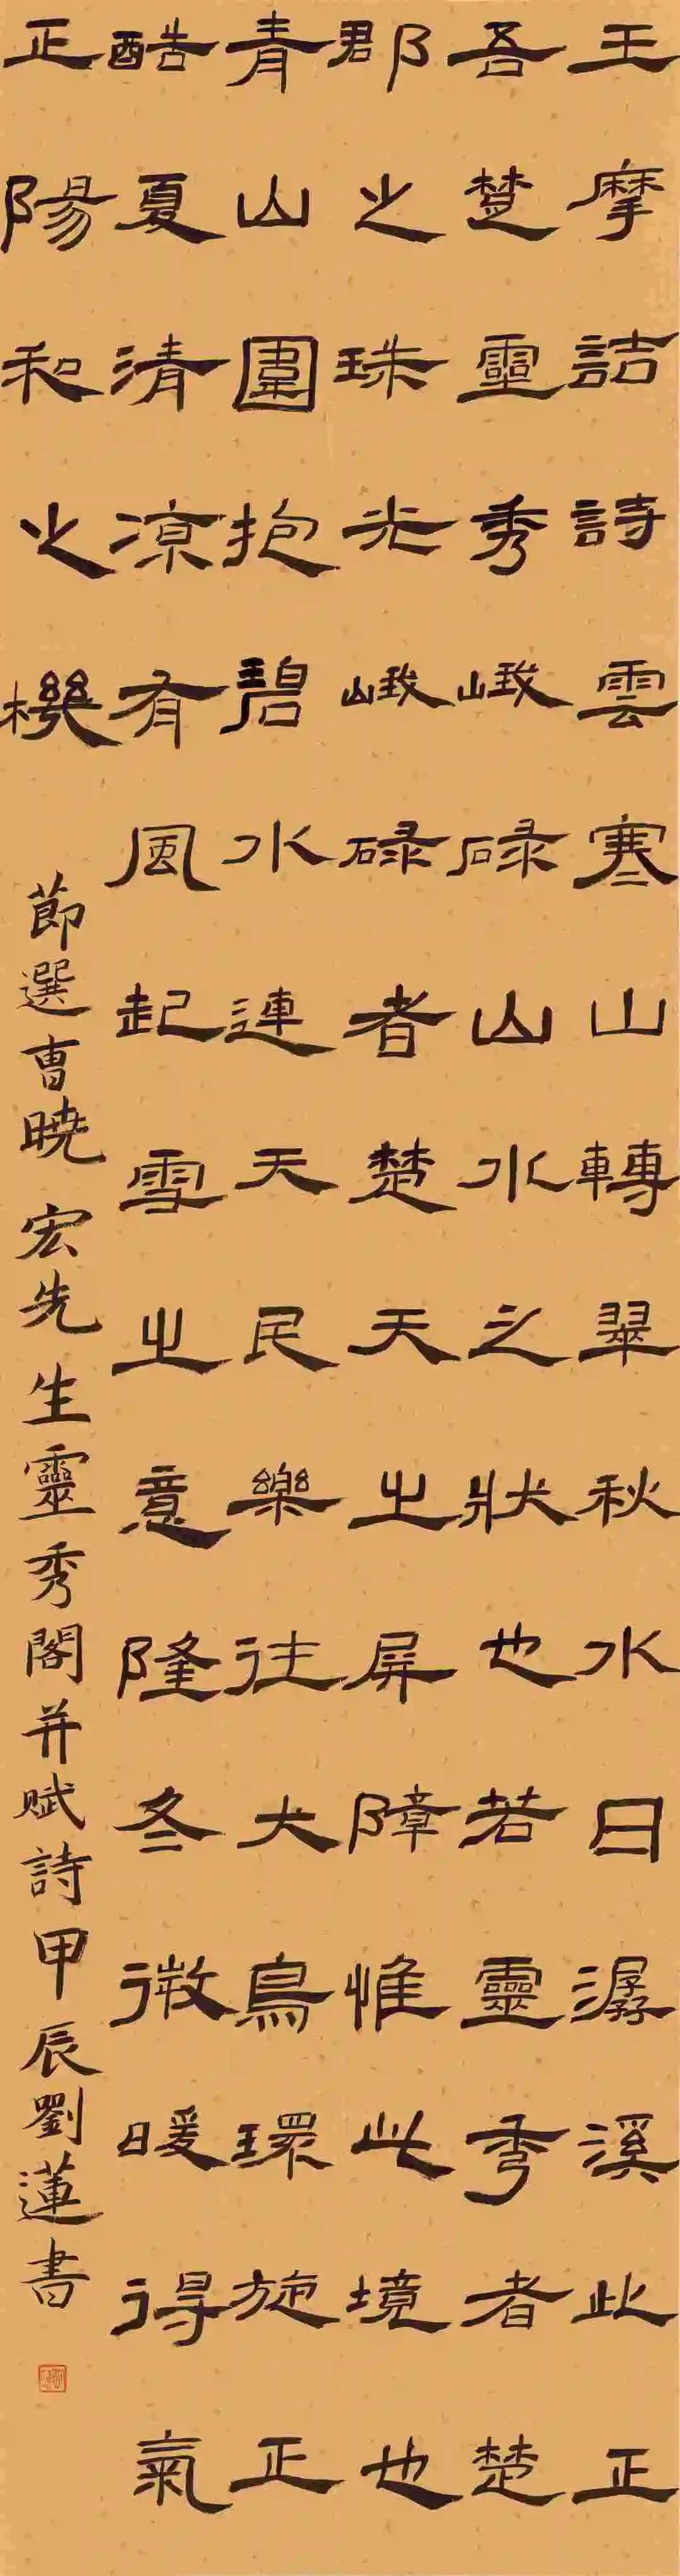 王摩詰詩雲寒山轉翠秋水日潺溪此正
吾楚靈秀峨碌山水之狀也若靈秀者楚
郡之珠光峨碌者楚天之屏障惟此境也
青山圍抱碧水連天民樂往大鳥環旋正
酷夏清凉有風起雪之意隆冬微暖得氣
正陽和之機
節選曹曉宏先生靈秀閣并賦詩甲辰劉蓮書